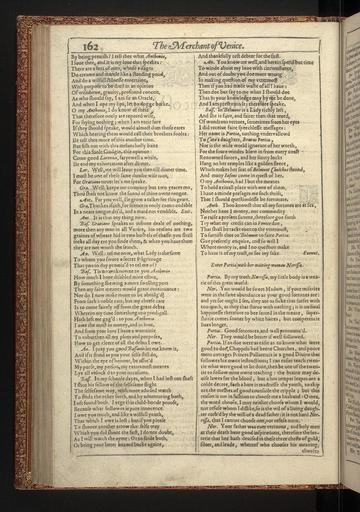 162 The Merchant of Venice.
By being peeuish? I tell thee what Anthonio,
I loue thee, and it is my loue that speakes:
There are a sort of men, whose visages
Do creame and mantle like a standing pond,
And do a wilfull stilnesse entertaine,
With purpose to be drest in an opinion
Of wisedome, grauity, profound conceit,
As who should say, I am sir an Oracle,
And when I ope my lips, let no dogge barke.
O my Anthonio, I do know of these
That therefore onely are reputed wise,
For saying nothing; when I am verie sure
If they should speake, would almost dam those eares
Which hearing them would call their brothers fooles:
Ile tell thee more of this another time.
But fish not with this melancholly baite
For this foole Gudgin, this opinion:
Come good Lorenzo, faryewell a while,
Ile end my exhortation after dinner.
Lor. Well, we will leaue you then till dinner time.
I must be one of these same dumbe wise men,
For Gratiano neuer let's me speake.
Gra. Well, keepe me company but two yeares mo,
Thou shalt not know the sound of thine owne tongue.
Ant. Far you well, Ile grow a talker for this geare.
Gra. Thankes ifaith, for silence is onely commendable
In a neats tongue dri'd, and a maid not vendible. Exit.
Ant. It is that any thing now.
Bas. Gratiano speakes an infinite deale of nothing,
more then any man in all Venice, his reasons are two
graines of wheate hid in two bushels of chaffe: you shall
seeke all day ere you finde them, & when you haue them
they are not worth the search.
An. Well: tel me now, what Lady is the same
To whom you swore a secret Pilgrimage
That you to day promis'd to tel me of?
Bas. Tis not vnknowne to you Anthonio
How much I haue disabled mine estate,
By something shewing a more swelling port
Then my faint meanes would grant continuance:
Nor do I now make mone to be abridg'd
From such a noble rate, but my cheefe care
Is to come fairely off from the great debts
Wherein my time something too prodigall
Hath left me gag'd: to you Anthonio
I owe the most in money, and in loue,
And from your loue I haue a warrantie
To vnburthen all my plots and purposes,
How to get cleere of all the debts I owe.
An. I pray you good Bassanio let me know it,
And if it stand as you your selfe still do,
Within the eye of honour, be assur'd
My purse, my person, my extreamest meanes
Lye all vnlock'd to your occasions.
Bass. In my schoole dayes, when I had lost one shaft
I shot his fellow of the selfesame flight
The selfesame way, with more aduised watch
To finde the other forth, and by aduenturing both,
I oft found both. I vrge this child-hoode proofe,
Because what followes is pure innocence.
I owe you much, and like a wilfull youth,
That which I owe is lost: but if you please
To shoote another arrow that selfe way
Which you did shoot the first, I do not doubt,
As I will watch the ayme: Or to finde both,
Or bring your latter hazard backe againe,
And thankfully rest debter for the first.
An. You know me well, and herein spend but time
To winde about my loue with circumstance,
And out of doubt you doe more wrong
In making question of my vttermost
Then if you had made waste of all I haue:
Then doe but say to me what I should doe
That in your knowledge may by me be done,
And I am prest vnto it: therefore speake.
Bass. In Belmont is a Lady richly left,
And she is faire, and fairer then that word,
Of wondrous vertues, sometimes from her eyes
I did receiue faire speechlesse messages:
Her name is Portia, nothing vndervallewd
To Cato's daughter, Brutus Portia,
Nor is the wide world ignorant of her worth,
For the foure windes blow in from euery coast
Renowned sutors, and her sunny locks
Hang on her temples like a golden fleece,
Which makes her seat of Belmont Cholchos strond,
And many Iasons come in quest of her.
O my Anthonio, had I but the meanes
To hold a riuall place with one of them,
I haue a minde presages me such thrift,
That I should questionlesse be fortunate.
Anth. Thou knowst that all my fortunes are at sea,
Neither haue I money, nor commodity
To raise a present summe, therefore goe forth
Try what my credit can in Venice doe,
That shall be rackt euen to the vttermost,
To furnish thee to Belmont to faire Portia.
Goe presently enquire, and so will I
Where money is, and I no question make
To haue it of my trust, or for my sake. Exeunt.
Enter Portia with her waiting woman Nerissa.
Portia. By my troth Nerrissa, my little body is a wea-
rie of this great world.
Ner. You would be sweet Madam, if your miseries
were in the same abundance as your good fortunes are:
and yet for ought I see, they are as sicke that surfet with
too much, as they that starue with nothing; it is no smal
happinesse therefore to bee seated in the meane, super-
fluitie comes sooner by white haires, but competencie
liues longer.
Portia. Good sentences, and well pronounc'd.
Ner. They would be better if well followed.
Portia. If to doe were as easie as to know what were
good to doe, Chappels had beene Churches, and poore
mens cottages Princes Pallaces: it is a good Diuine that
followes his owne instructions; I can easier teach twen-
tie what were good to be done, then be one of the twen-
tie to follow mine owne teaching: the braine may de-
uise lawes for the blood, but a hot temper leapes ore a
colde decree, such a hare is madnesse the youth, to skip
ore the meshes of good counsaile the cripple; but this
reason is not in fashion to choose me a husband: O mee,
the word choose, I may neither choose whom I would,
nor refuse whom I dislike, so is the wil of a liuing daugh-
ter curb'd by the will of a dead father: it is not hard Ner-
rissa, that I cannot choose one, nor refuse none.
Ner. Your father was euer vertuous, and holy men
at their death haue good inspirations, therefore the lot-
terie that hee hath deuised in these three chests of gold,
siluer, and leade, whereof who chooses his meaning,
chooses